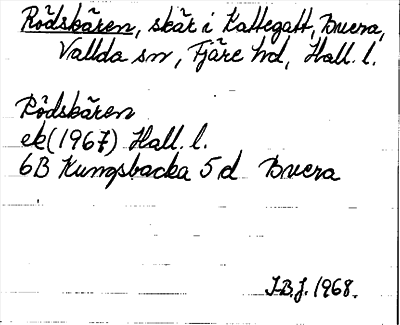 Rödskären, skär i Kattegatt, Buera,
Vallda sn, Fjäre hd, Hall. l.
Rödskären
ek (1967) Hall. l.
6B Kungsbacka 5d Buera
J.B.J. 1968.